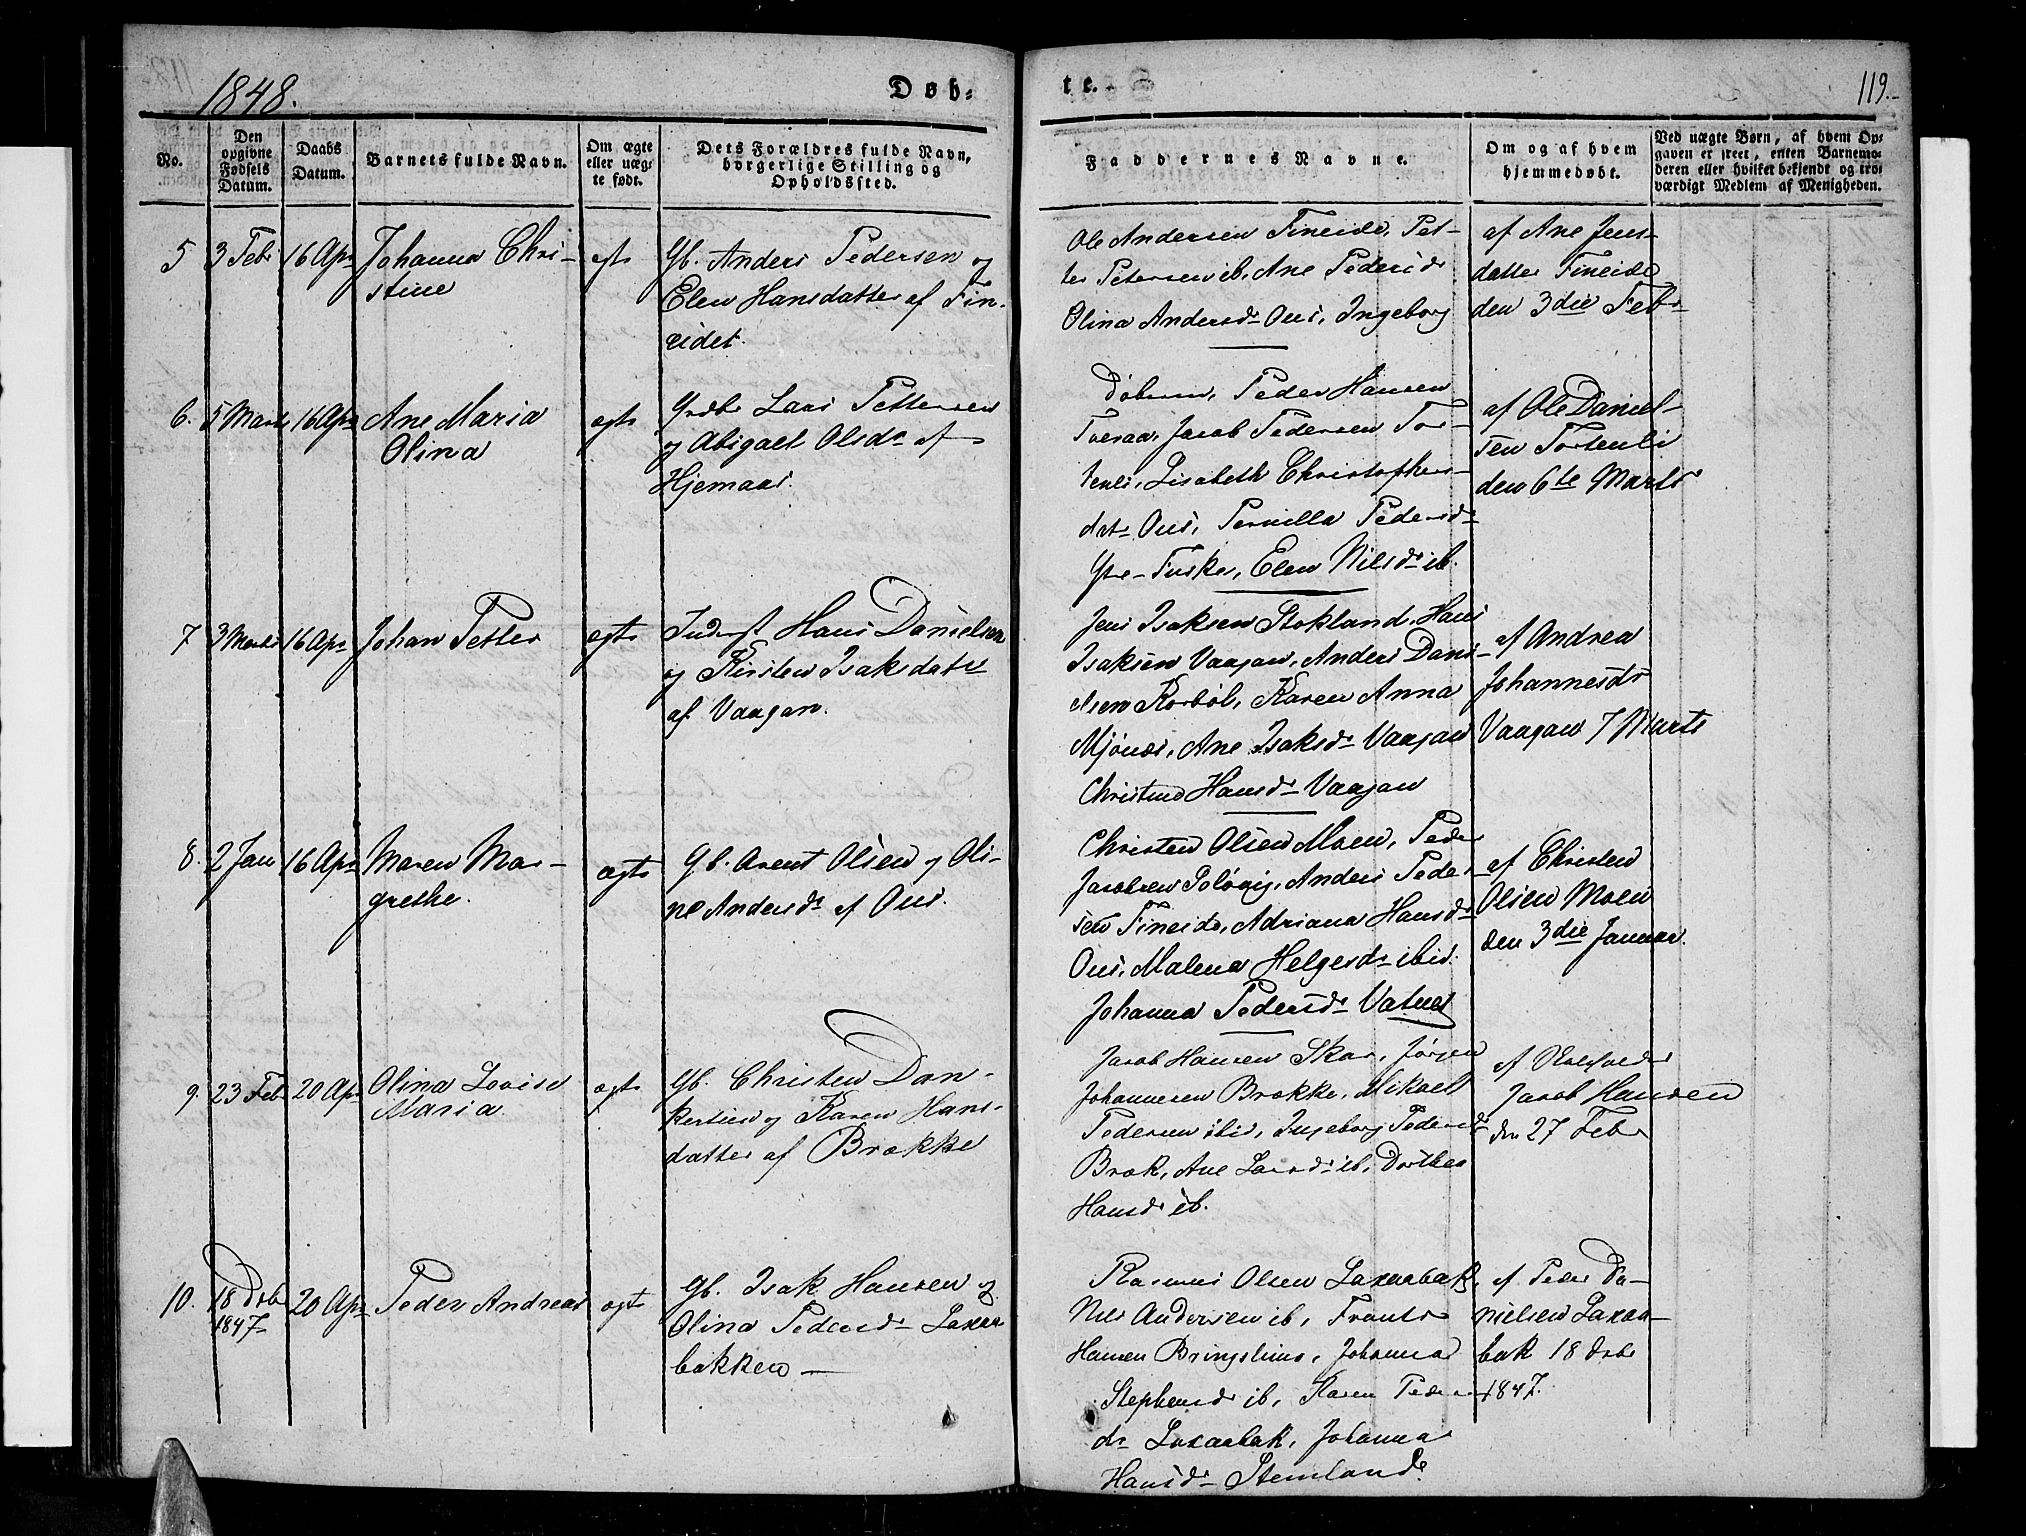 1848.
Døb-
te.
119.
No.
Den
opgivne
Fødsels
Datum.
Daabs
Datum.
Barnets fulde Navn.
Om ægte
eller uæg-
te født.
Dets Forældres fulde Navn,
borgerlige Stilling og
Opholdssted.
Faddernes Navne.
Om og af hvem
hjemmedøbt.
Ved uægte Børn, af hvem Op-
gaven er skeet, enten Barnemo-
deren eller hvilket bekjendt og tro-
værdigt Medlem af Menigheden.
5 3 Feb 16 Apr Johanna Chri-
stine
egt
Gb. Anders Pedersen og
Elen Hansdatter af Fin-
eidet.
Ole Andersen Fineide, Pet-
ter Petersen ib, Ane Pedersd
Olina Andersdr Ous, Ingeborg
af Ane Jens-
datter Fineide
den 3die Febr
6. 5 Marts 16 Apr Ane Maria
Olina
ægte
Lars Pettersen
og Abigael Olsdr af
Hjemaas.
Døberen, Peder Hansen
Tveraa, Jacob Pedersen Tor-
tenli, Lisabeth Christophers-
datr Ous, Pernilla Pedersdr
Ytre-Fuske, Elen Nilsdr ib.
af Ole Daniel-
sen Tortenli
den 6te Marts
7 3 Marts 16 Apr Johan Petter
ægte
Inderst Hans Danielsen
og Kirsten Isaksdatr
af Vaagan.
Jens Isaksen Stokland, Hans
Isaksen Vaagan, Anders Dani-
elsen Korbøl, Karen Anna
Mjønæs, Ane Isaksdr Vaagan
Christine Hansdr Vaagan
af Andrea
Johannesdr
Vaagan 7 Marts
8. 2 Jan 16 Apr Maren Mar-
grethe.
ægte
Gb. Arent Olsen og Oli-
ne Andersdr af Ous.
Christen Olsen Moen, Peder
Jacobsen Poløvig, Anders Peder-
sen Fineide, Adriana Hansdr
Ous, Malena Helgesdr ibid.
Johanna Pedersdr Vatnet
af Christen
Olsen Moen
den 3die Januar.
9. 23 Feb 20 Apr Olina Lovise
Maria
ægte
Gb. Christen Dan-
kertsen og Karen Hans-
datter af Brække
Jacob Hansen Skar, Jørgen
Johannesen Brække, Mikael
Pedersen ibid, Ingeborg Pedersdr
Bræk, Ane Larsdr ib, Dorthea
Hansdr ib.
af
Jacob Hansen
den 27 Febr
10. 18 Dcbr 20 Apr Peder Andreas
1847
ægte
Gb. Isak Hansen og
Olina Pedersdr Laxaa-
bakken —
Rasmus Olsen Laxaabak,
Nils Andersen ib, Frants
Hansen Bringslimo, Johanna
Stephensdr ib, Karen Peders-
dr Laxaabak, Johanna
Hansdr Stemland
af Peder Da-
nielsen Laxaa-
bak 18 Dcbr
1847.